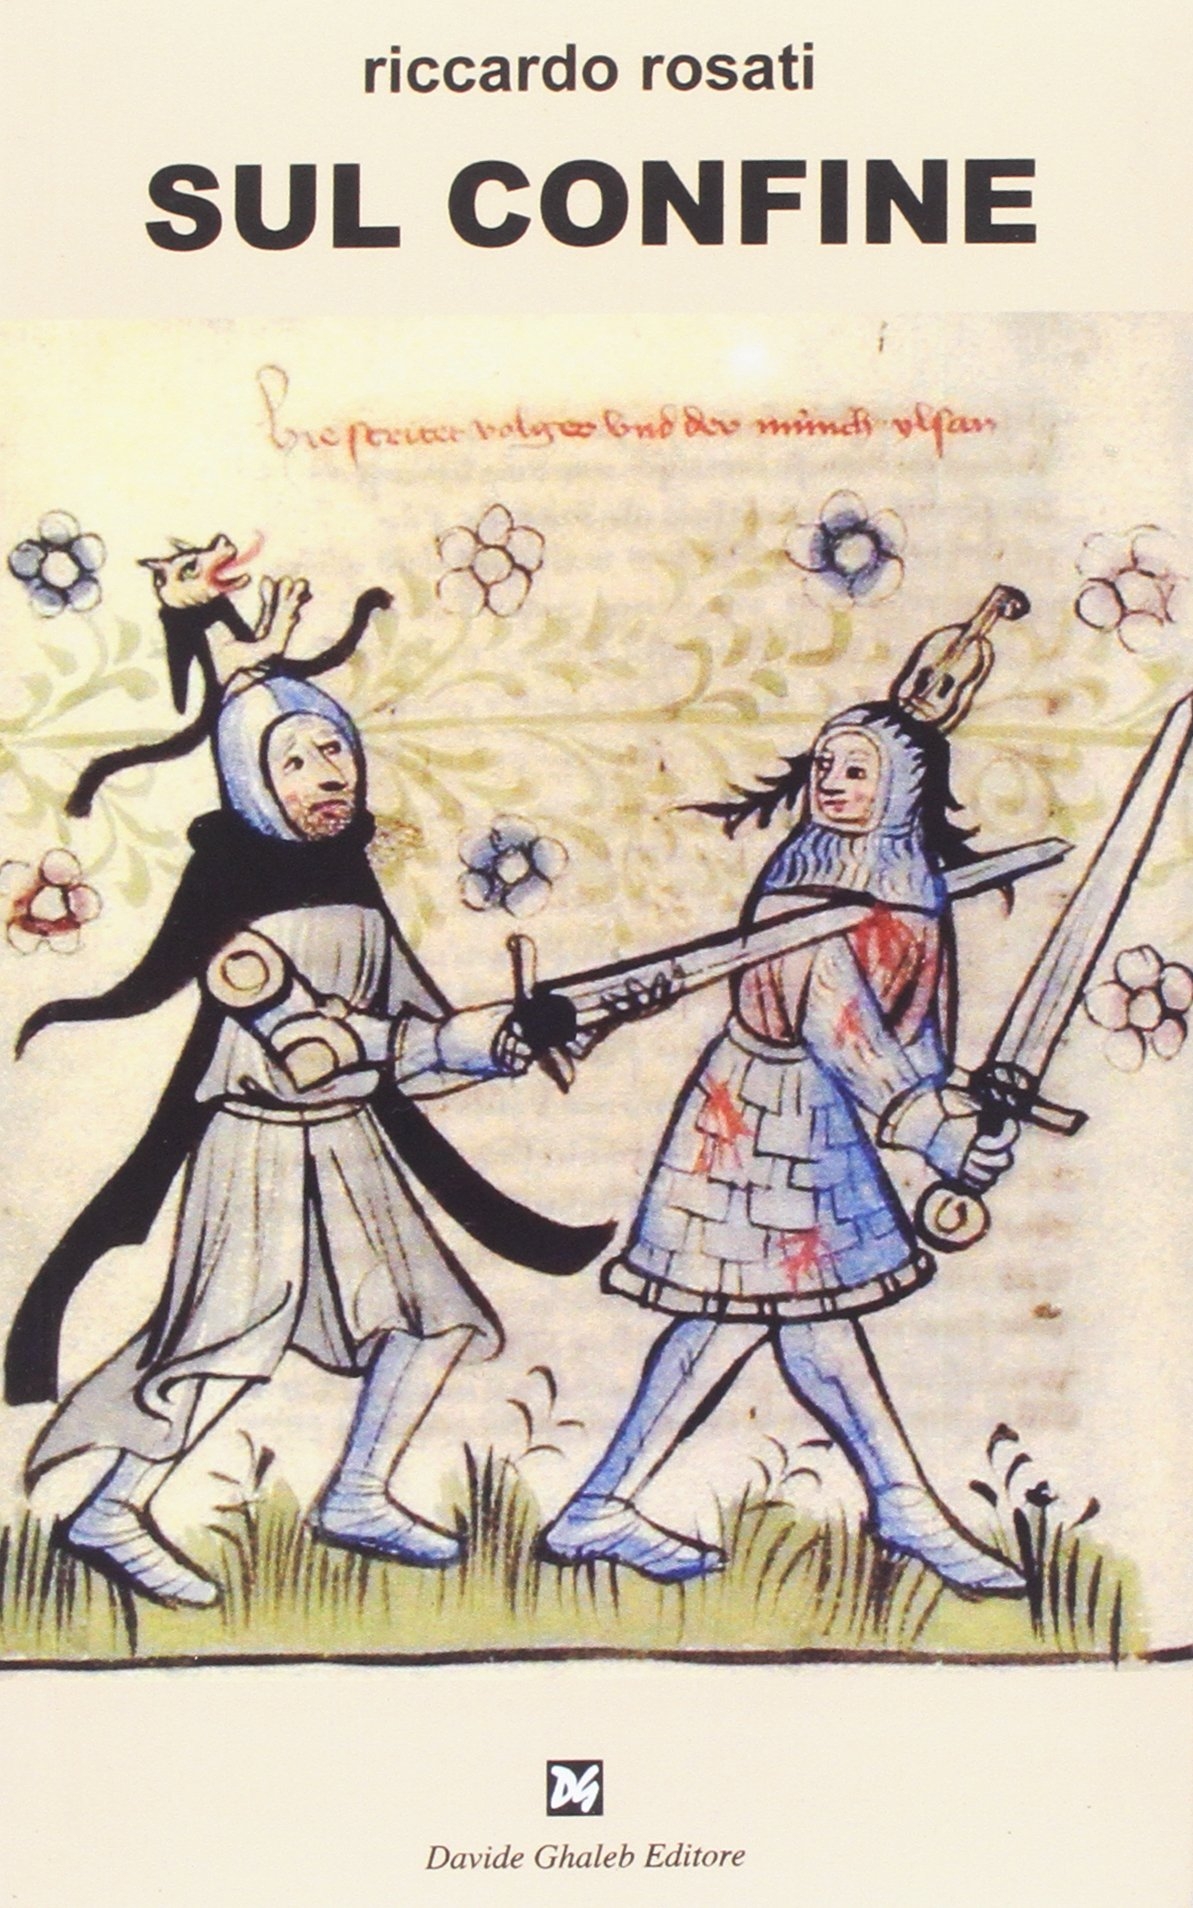 riccardo rosati
SUL CONFINE
hie stritet volger vnd der münch ylsan
DG
Davide Ghaleb Editore